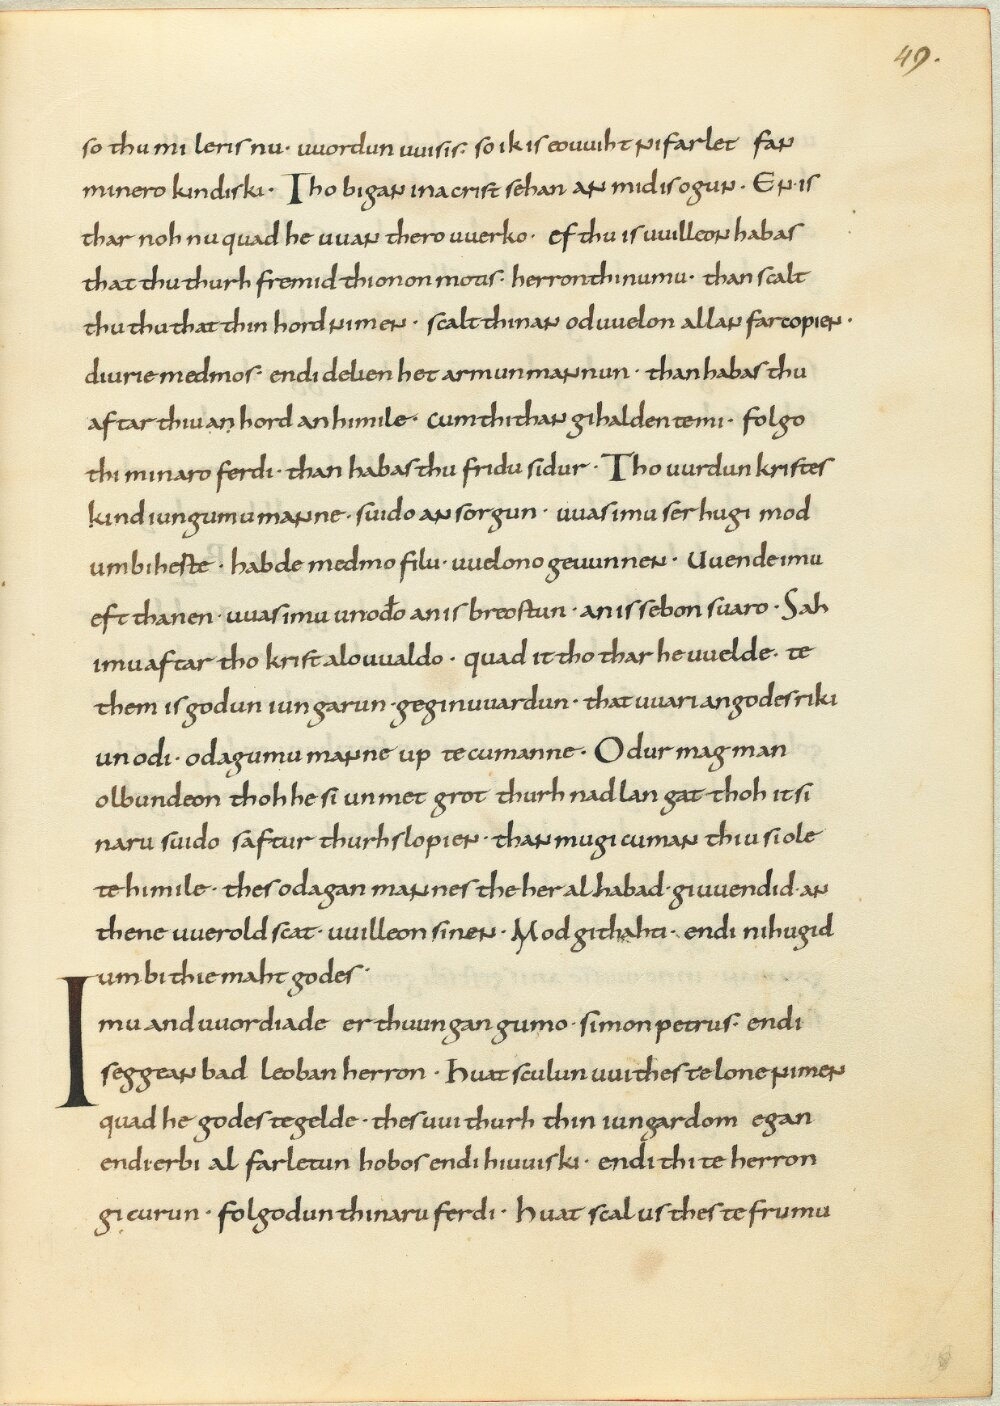 49.
so thu mi leris nu· uuordun uuisis· so ik is eouuiht ni farlet fan
minero kindiski· Tho bigan ina crist sehan an mid is ogun· En is
thar noh nu quad he uuan thero uuerko· ef thu is uuilleon habas
that thu thurh fremid thionon motis· herron thinumu· than scalt
thu thu that thin hord nimen· scalt thinan oduuelon allan farcopien·
diurie medmos· endi delien het armun mannun· than habas thu
aftar thiu an hord an himile· cum thi than gihalden te mi· folgo
thi minaro ferdi· than habas thu fridu sidur· Tho uurdun kristes
kind iungumu manne· suido an sorgun· uuas imu ser hugi mod
umbi herte· habde medmo filu· uuelono geuunnen· Uuende imu
eft thanen· uuas imu unođo an is breostun· an is sebon suaro· Sah
imu aftar tho krist alouualdo· quad it tho thar he uuelde· te
them is godun iungarun· geginuuardun· that uuari an godes riki
un odi· odagumu manne up te cumanne· Odur mag man
olbundeon thoh he si unmet grot thurh nadlan gat thoh it si
naru suido saftur thurhslopien· than mugi cuman thiu siole
te himile· thes odagan mannes the her al habad· giuuendid· an
thene uuerold scat· uuilleon sinen· Mod githahti· endi ni hugid
umbi thie maht godes·
Imu anduuordiade er thuungan gumo· simon petrus· endi
seggean bad leoban herron· huat sculun uui thes te lone nimen
quad he godes te gelde· thes uui thurh thin iungardom egan
endi erbi al farletun hobos endi hiuuiski· endi thi te herron
gicurun· folgodun thinaru ferdi· huat scal us thes te frumu